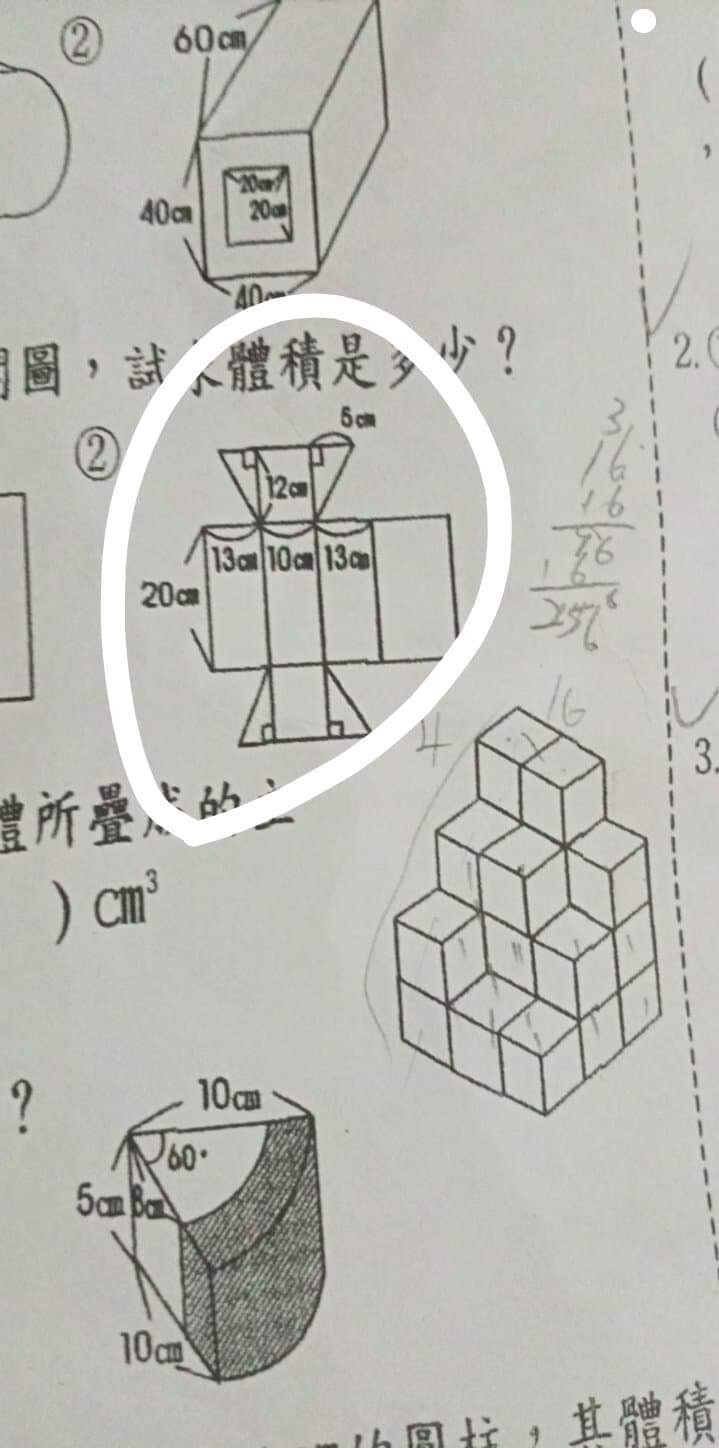 ②
60cm
20cm
20cm
40cm
40cm
圖，試求體積是多少？
②
5cm
12cm
13cm 10cm 13cm
20cm
3
16
16
96
16
256
16
4
體所疊成的立
) cm³
2.
3.
？
10cm
60°
5cm 8cm
10cm
的圓柱，其體積